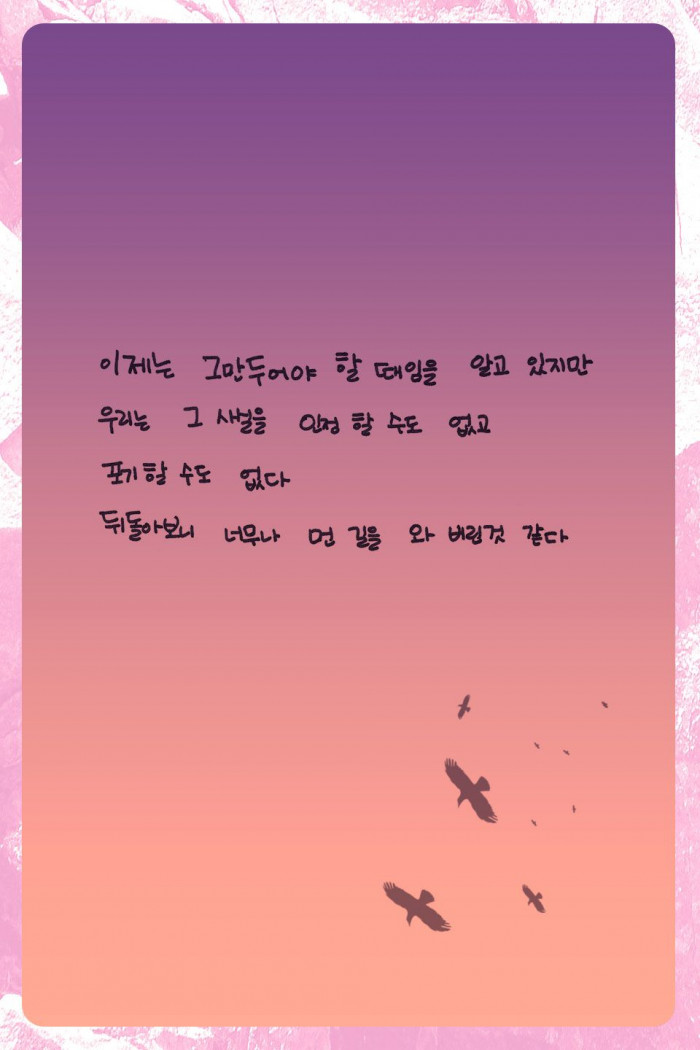 이제는 그만두어야 할 때임을 알고 있지만
우리는 그 사실을 인정 할 수도 없고
포기할 수도 없다
뒤돌아보니 너무나 먼 길을 와 버린것 같다